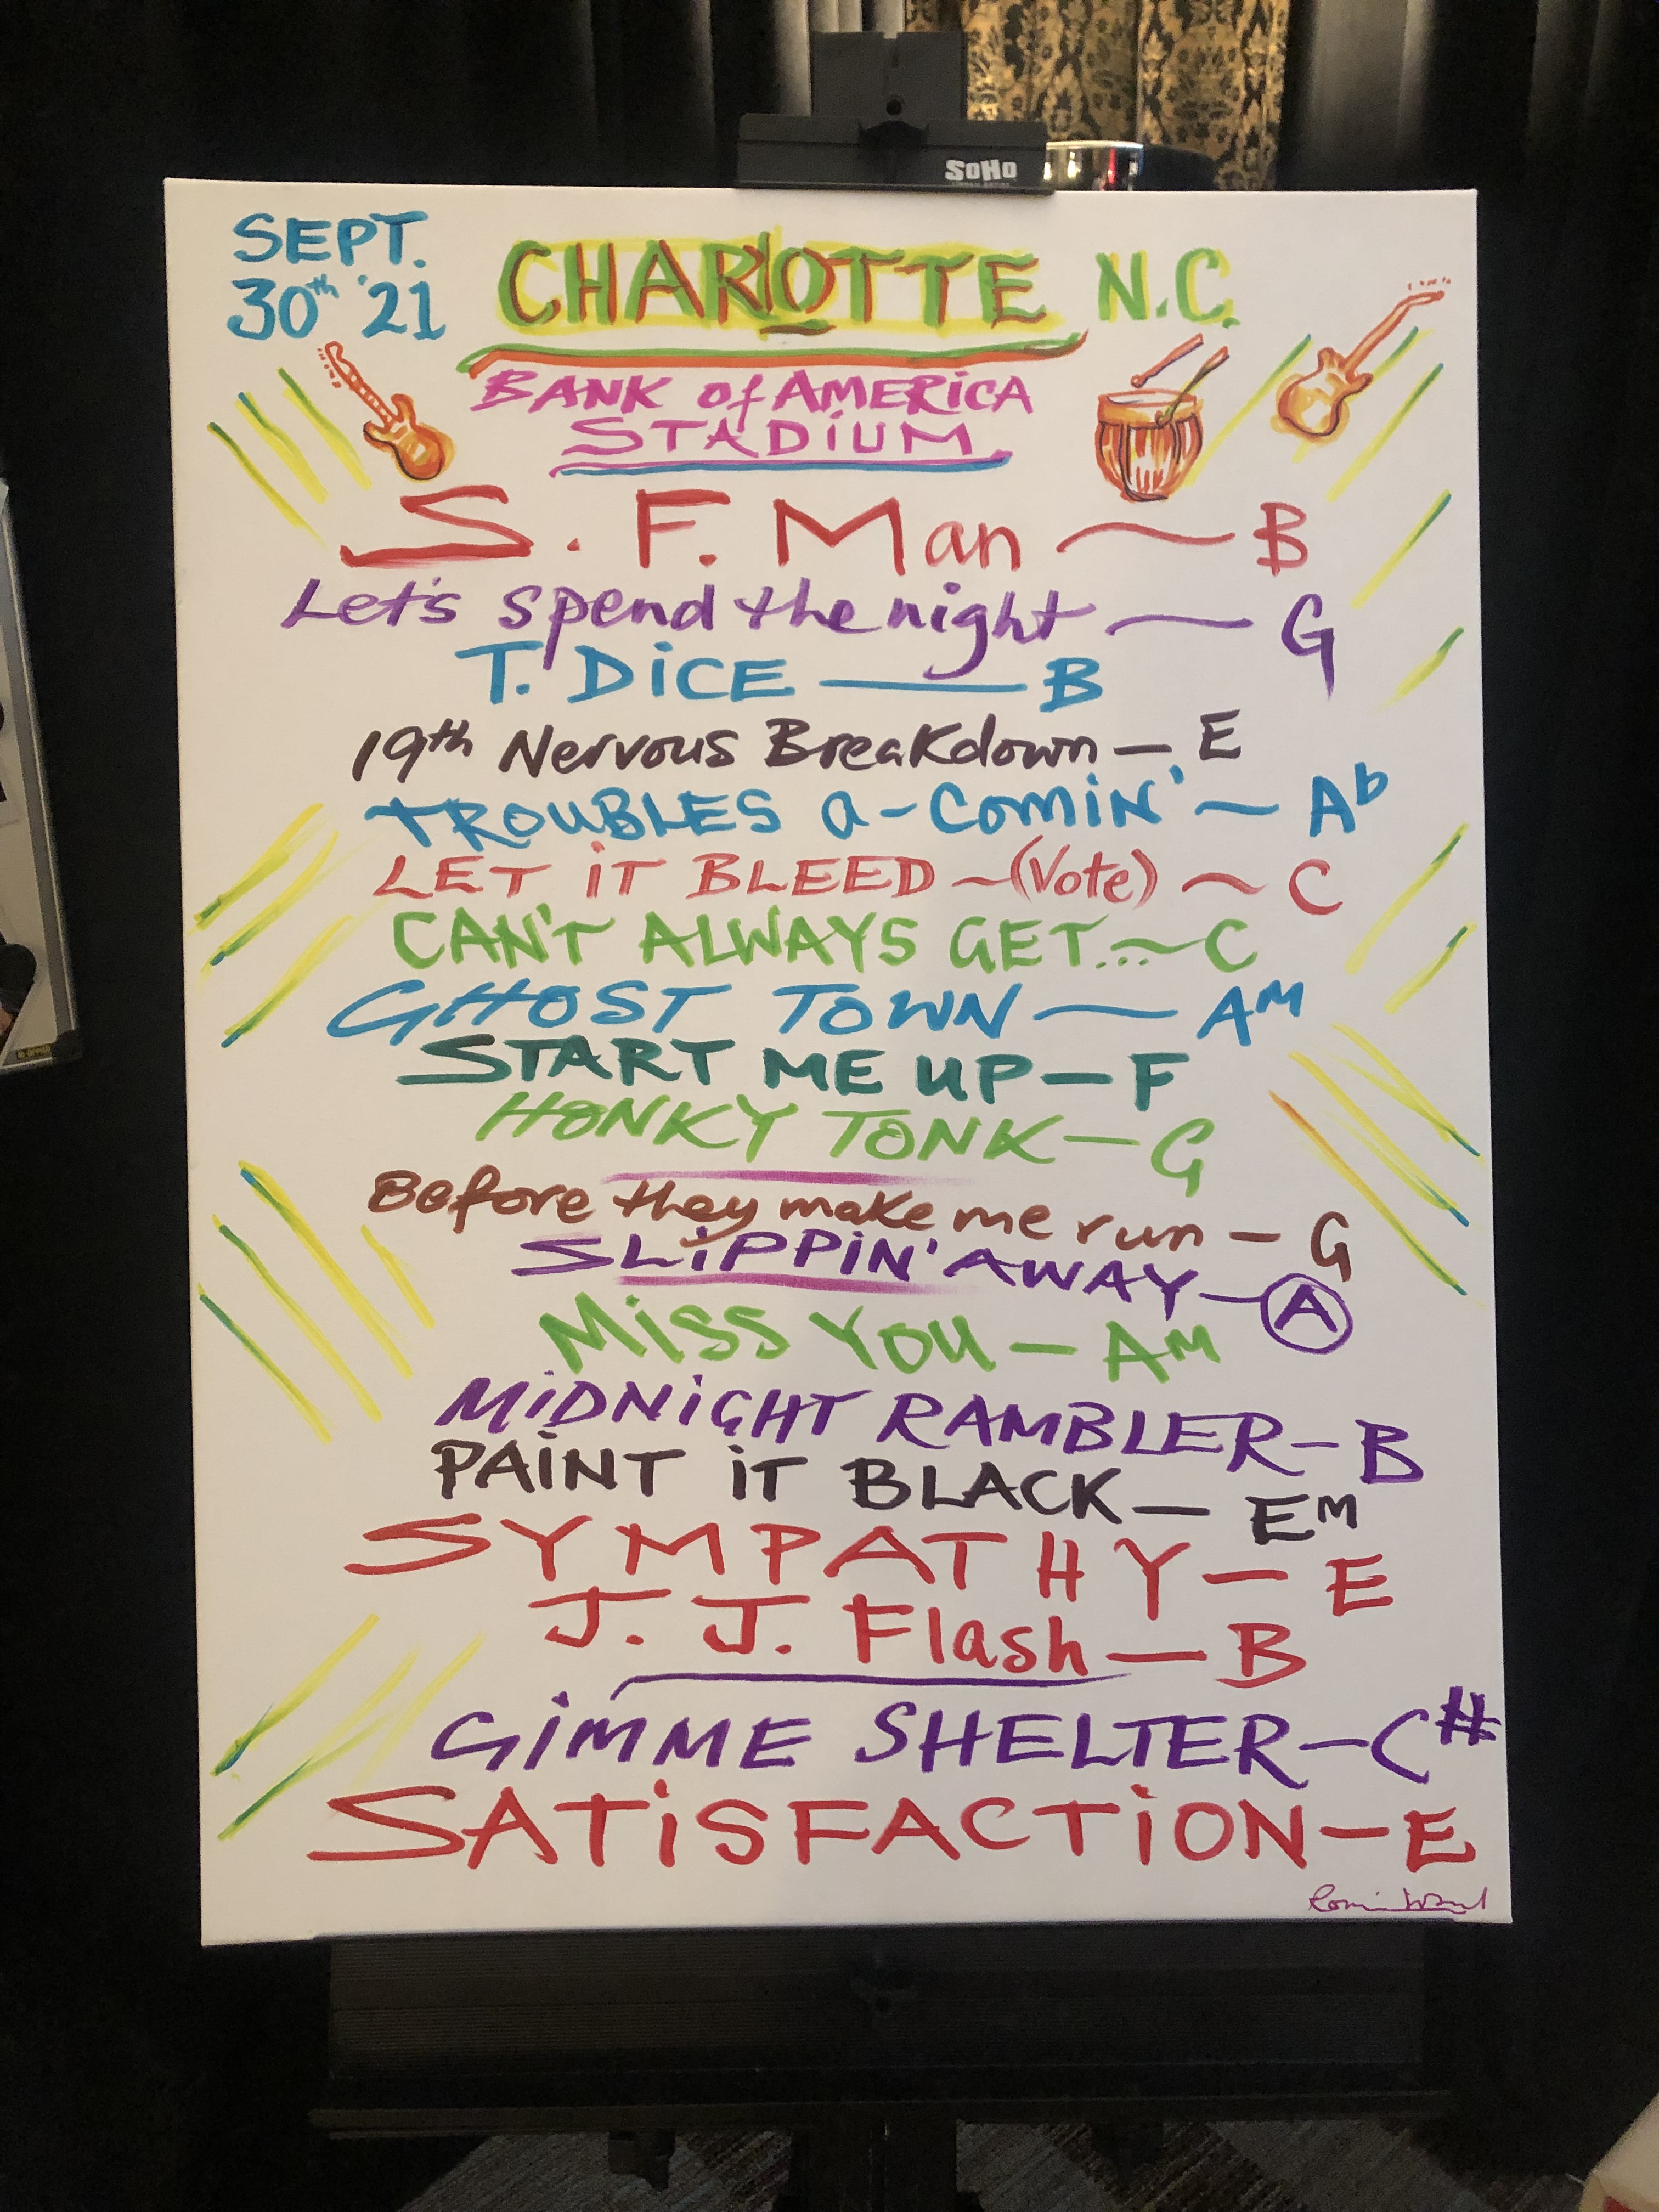 SOHO
SEPT.
30th '21
CHARLOTTE N.C.
BANK of AMERICA
STADiUM
S. F. Man ~ B
Let's spend the night — G
T. DiCE — B
19th Nervous Breakdown — E
TROUBLES a-Comin' ~ Ab
LET iT BLEED ~ (Vote) ~ C
CAN'T ALWAYS GET... ~ C
GHOST TOWN — AM
START ME UP — F
HONKY TONK — G
Before they make me run — G
SLiPPiN' AWAY — A
MiSS YOU — AM
MiDNiGHT RAMBLER — B
PAiNT iT BLACK — EM
SYMPATHY — E
J. J. Flash — B
GiMME SHELTER — C#
SATiSFACTiON — E